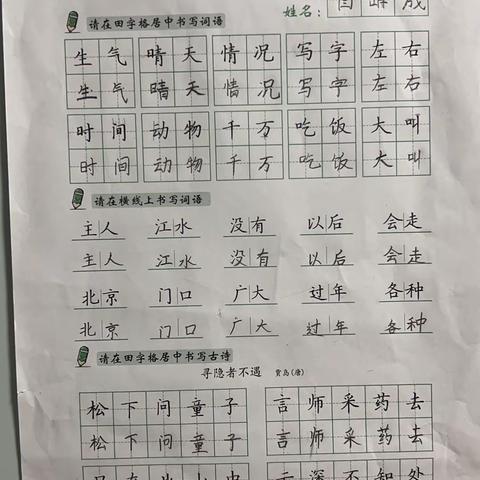 请在田字格居中书写词语
姓名：
生气 晴天 情况 写字 左右
生气 晴天 情况 写字 左右
时间 动物 千万 吃饭 大叫
时间 动物 千万 吃饭 大叫
请在横线上书写词语
主人 江水 没有 以后 会走
主人 江水 没有 以后 会走
北京 门口 广大 过年 各种
北京 门口 广大 过年 各种
请在田字格居中书写古诗
寻隐者不遇 贾岛(唐)
松下问童子 言师采药去
松下问童子 言师采药去
只在此山中 云深不知处